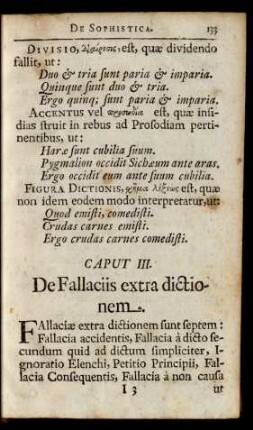 DE SOPHISTICA. 133
DIVISIO, διαίρεσις, est, quæ dividendo
fallit, ut:
Duo & tria sunt paria & imparia.
Quinque sunt duo & tria.
Ergo quinq; sunt paria & imparia.
ACCENTUS vel προσῳδία est, quæ insi-
dias struit in rebus ad Prosodiam perti-
nentibus, ut:
Haræ sunt cubilia suum.
Pygmalion occidit Sichæum ante aras.
Ergo occidit eum ante suum cubilia.
FIGURA DICTIONIS, σχῆμα λέξεως est, quæ
non idem eodem modo interpretatur, ut:
Quod emisti, comedisti.
Crudas carnes emisti.
Ergo crudas carnes comedisti.
CAPUT III.
De Fallaciis extra dictio-
nem.
FAllaciæ extra dictionem sunt septem:
Fallacia accidentis, Fallacia à dicto se-
cundum quid ad dictum simpliciter, I-
gnoratio Elenchi, Petitio Principii, Fal-
lacia Consequentis, Fallacia à non causa
I 3 ut